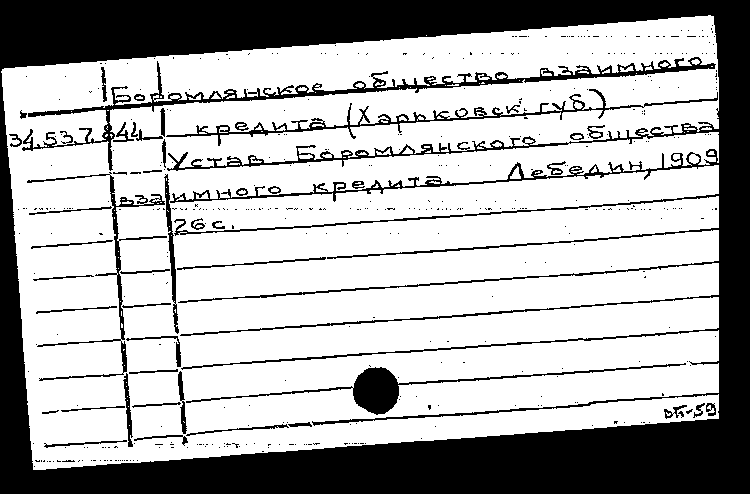 Боромлянское общество взаимного
34.53.7.844 кредита (Харьковск. губ.)
Устав Боромлянского общества
взаимного кредита. Лебедин, 1909
26 с.